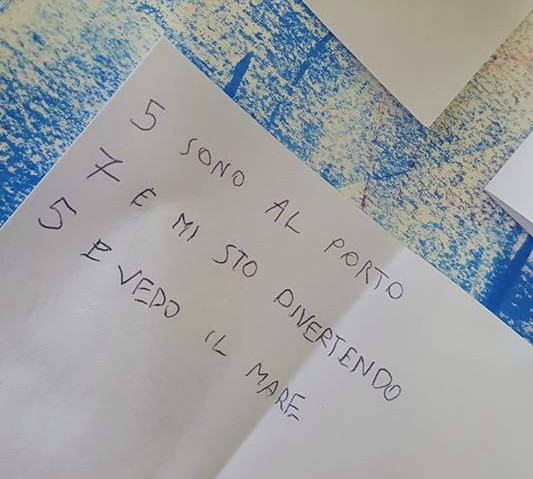 5 SONO AL PORTO
7 E MI STO DIVERTENDO
5 E VEDO IL MARE